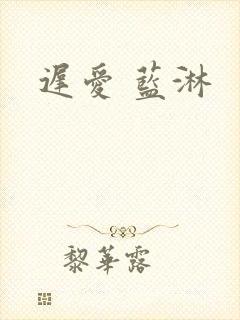 遲愛 藍淋
黎華露